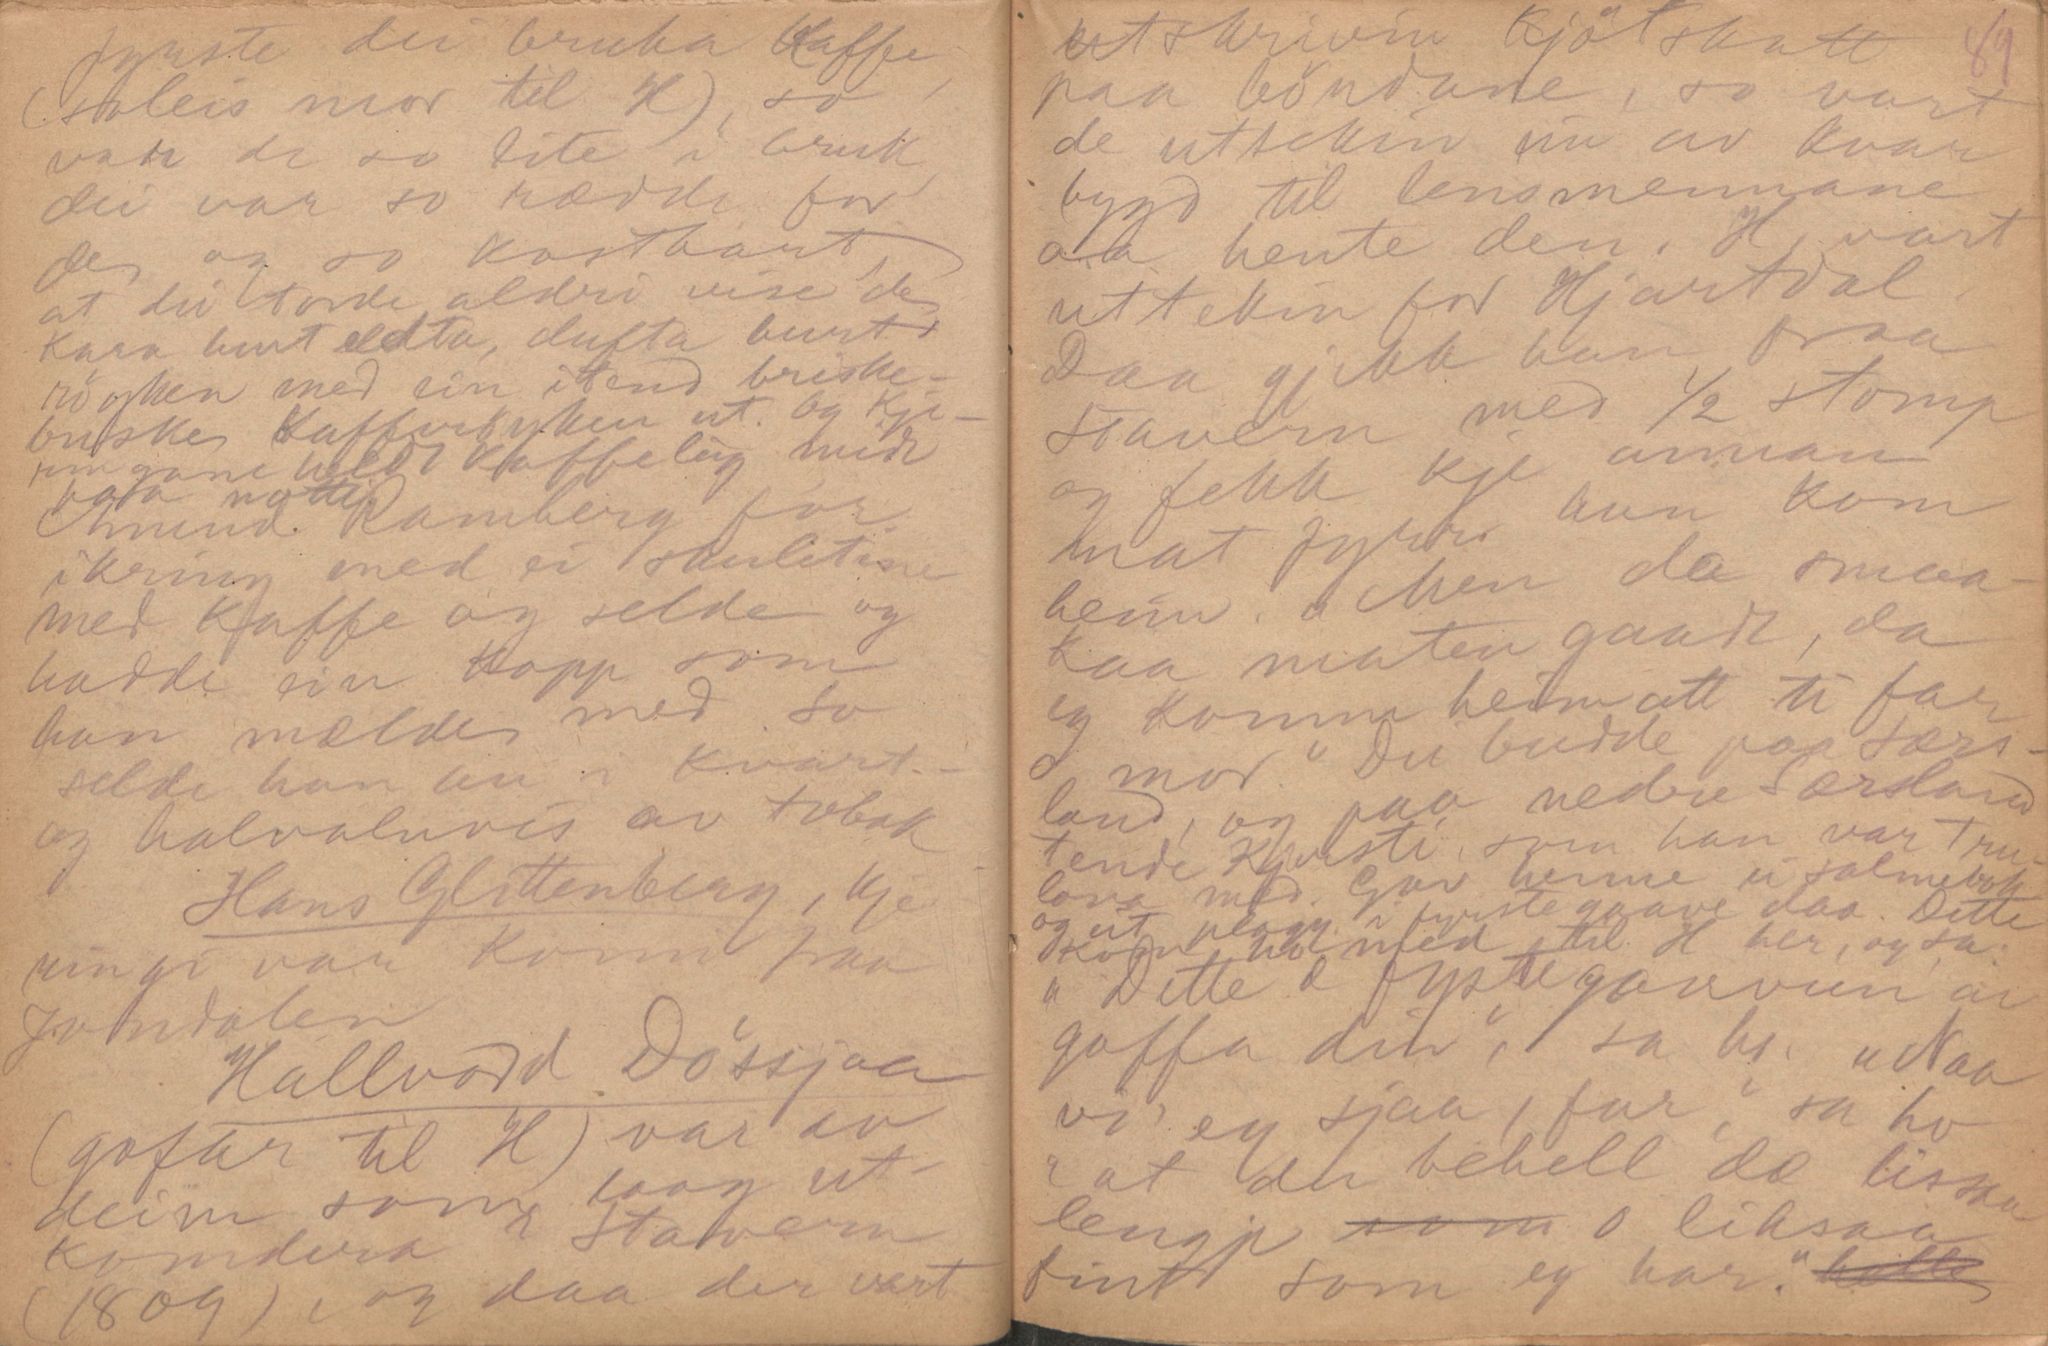 fyrste dei bruka Kaffe
(soleis mor til H), so
var de so lite i bruk,
dei var so rædde for
des og so kostbart,
at dei torde aldri vise des
Kara burt eldta, dufta burt
röyken med ein itend briske-
buskes Kaffe ut. Og Kje-
ringane heldt Kaffelag midt
paa natti
Amund Ramberg for
ikring med ei skuletine
med Kaffe og selde og
hadde ein Kopp som
han mælde med so
selde han au i kvart-
og halvaluvis av tobak
Hans Glittenberg, kje
ringi var Komi paa
Jondalen
Hallvord Dössjaa
(gofar til H) var av
deim som laag ut-
komdera i Stavern
(1809), og daa der vart
89
utskrivin Kjötskatt
paa böndane, so vart
de uttekin ein av kvar
bygd til lensmennane
aa hente den. H. vart
uttekin for Hjartdal.
Daa gjekk han fraa
Stavern med 1/2 stomp
og fekk kje annan
mat fyrr han kom
heim. "Men da smaa-
kaa maten gaadt, da
eg komm heimatt ti far
o mor" Dei budde paa Særs-
land, og paa nedre Særsland
tende Kjersti, som han var tru-
lova med. Gav henne ei salmebok
og eit plagg i fyrstegaave daa. Dette
kom med til H her, og sa:
"Dette æ fystegaavun ai
goffa din", sa hj. "Naa
vi' eg sjaa, far," sa ho
"at du behell dæ lissaa
lengje som o liksaa
fint som eg har."